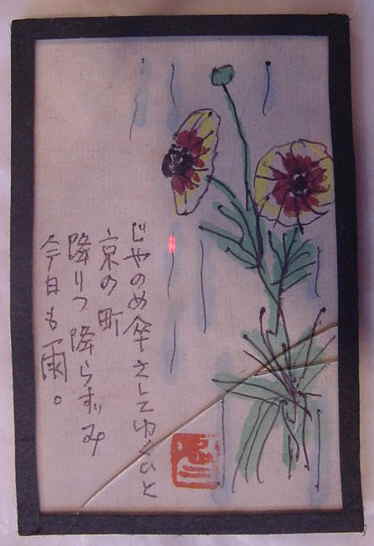 じゃのめ傘さしてゆくひと
京の町
降りつ降らずみ
今日も雨。